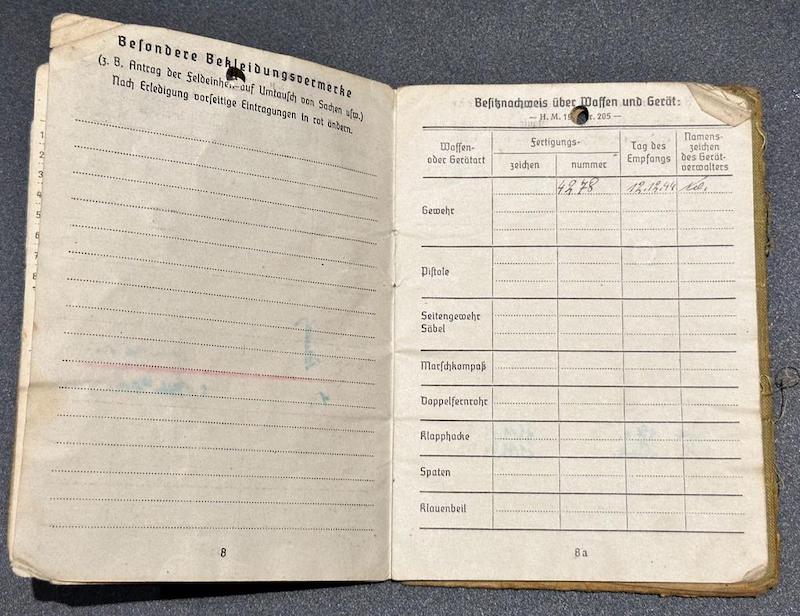 Besondere Bekleidungsvermerke
(z. B. Antrag der Feldeinheit auf Umtausch von Sachen usw.)
Nach Erledigung vorseitige Eintragungen in rot ändern.
8
1
2
3
4
5
6
7
8
Besitznachweis über Waffen und Gerät:
— H. M. 19 Nr. 205 —
Waffen-
oder Gerätart
Fertigungs-
zeichen
nummer
Tag des
Empfangs
Namens-
zeichen
des Gerät-
verwalters
4278 12.12.44
Gewehr
Pistole
Seitengewehr
Säbel
Marschkompaß
Doppelfernrohr
Klapphacke
Spaten
Klauenbeil
8a